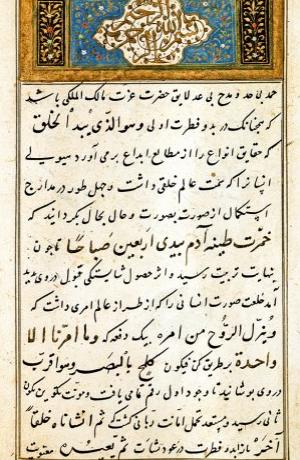 بسم الله الرحمن الرحیم
حمد بی حد و مدح بی عد لایق حضرت عزت مالک الملکی باشد
که همچنانک در بدو فطرت اولی و هو الذی یبدأ الخلق
که حقایق انواع را از مطالع ابداع برمی آورد هیولی
انسانرا که سمت عالم خلقی داشت و چهل طور در مدارج
استکمال از صورت بصورت و حال بحال بگردانید که
خمرت طینه آدم بیدی اربعین صباحا تا چون
نهایت تربیت رسید و اثر حصول شایستگی قبول در وی پدید
آمد خلعت صورت انسانی را که از طراز عالم امری داشت که
و ینزل الروح من امره بیک دفعه که و ما امرنا الا
واحدة بر طریق کن فیکون کلمح بالبصر و هو اقرب
در وی پوشانید تا وجود اول رقم تمامی یافت و نوبت تکوین بکون
ثانی رسید و مستعد تحمل امانت ربانی گشت که ثم انشاناه خلقا
آخر باز ابداء فطرت در عود نشات ثم یعیده معنویت